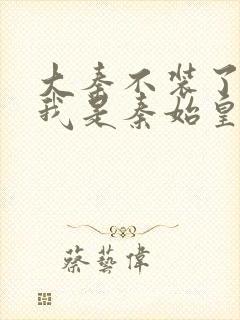 大秦不装了
我是秦始皇
蔡藝偉